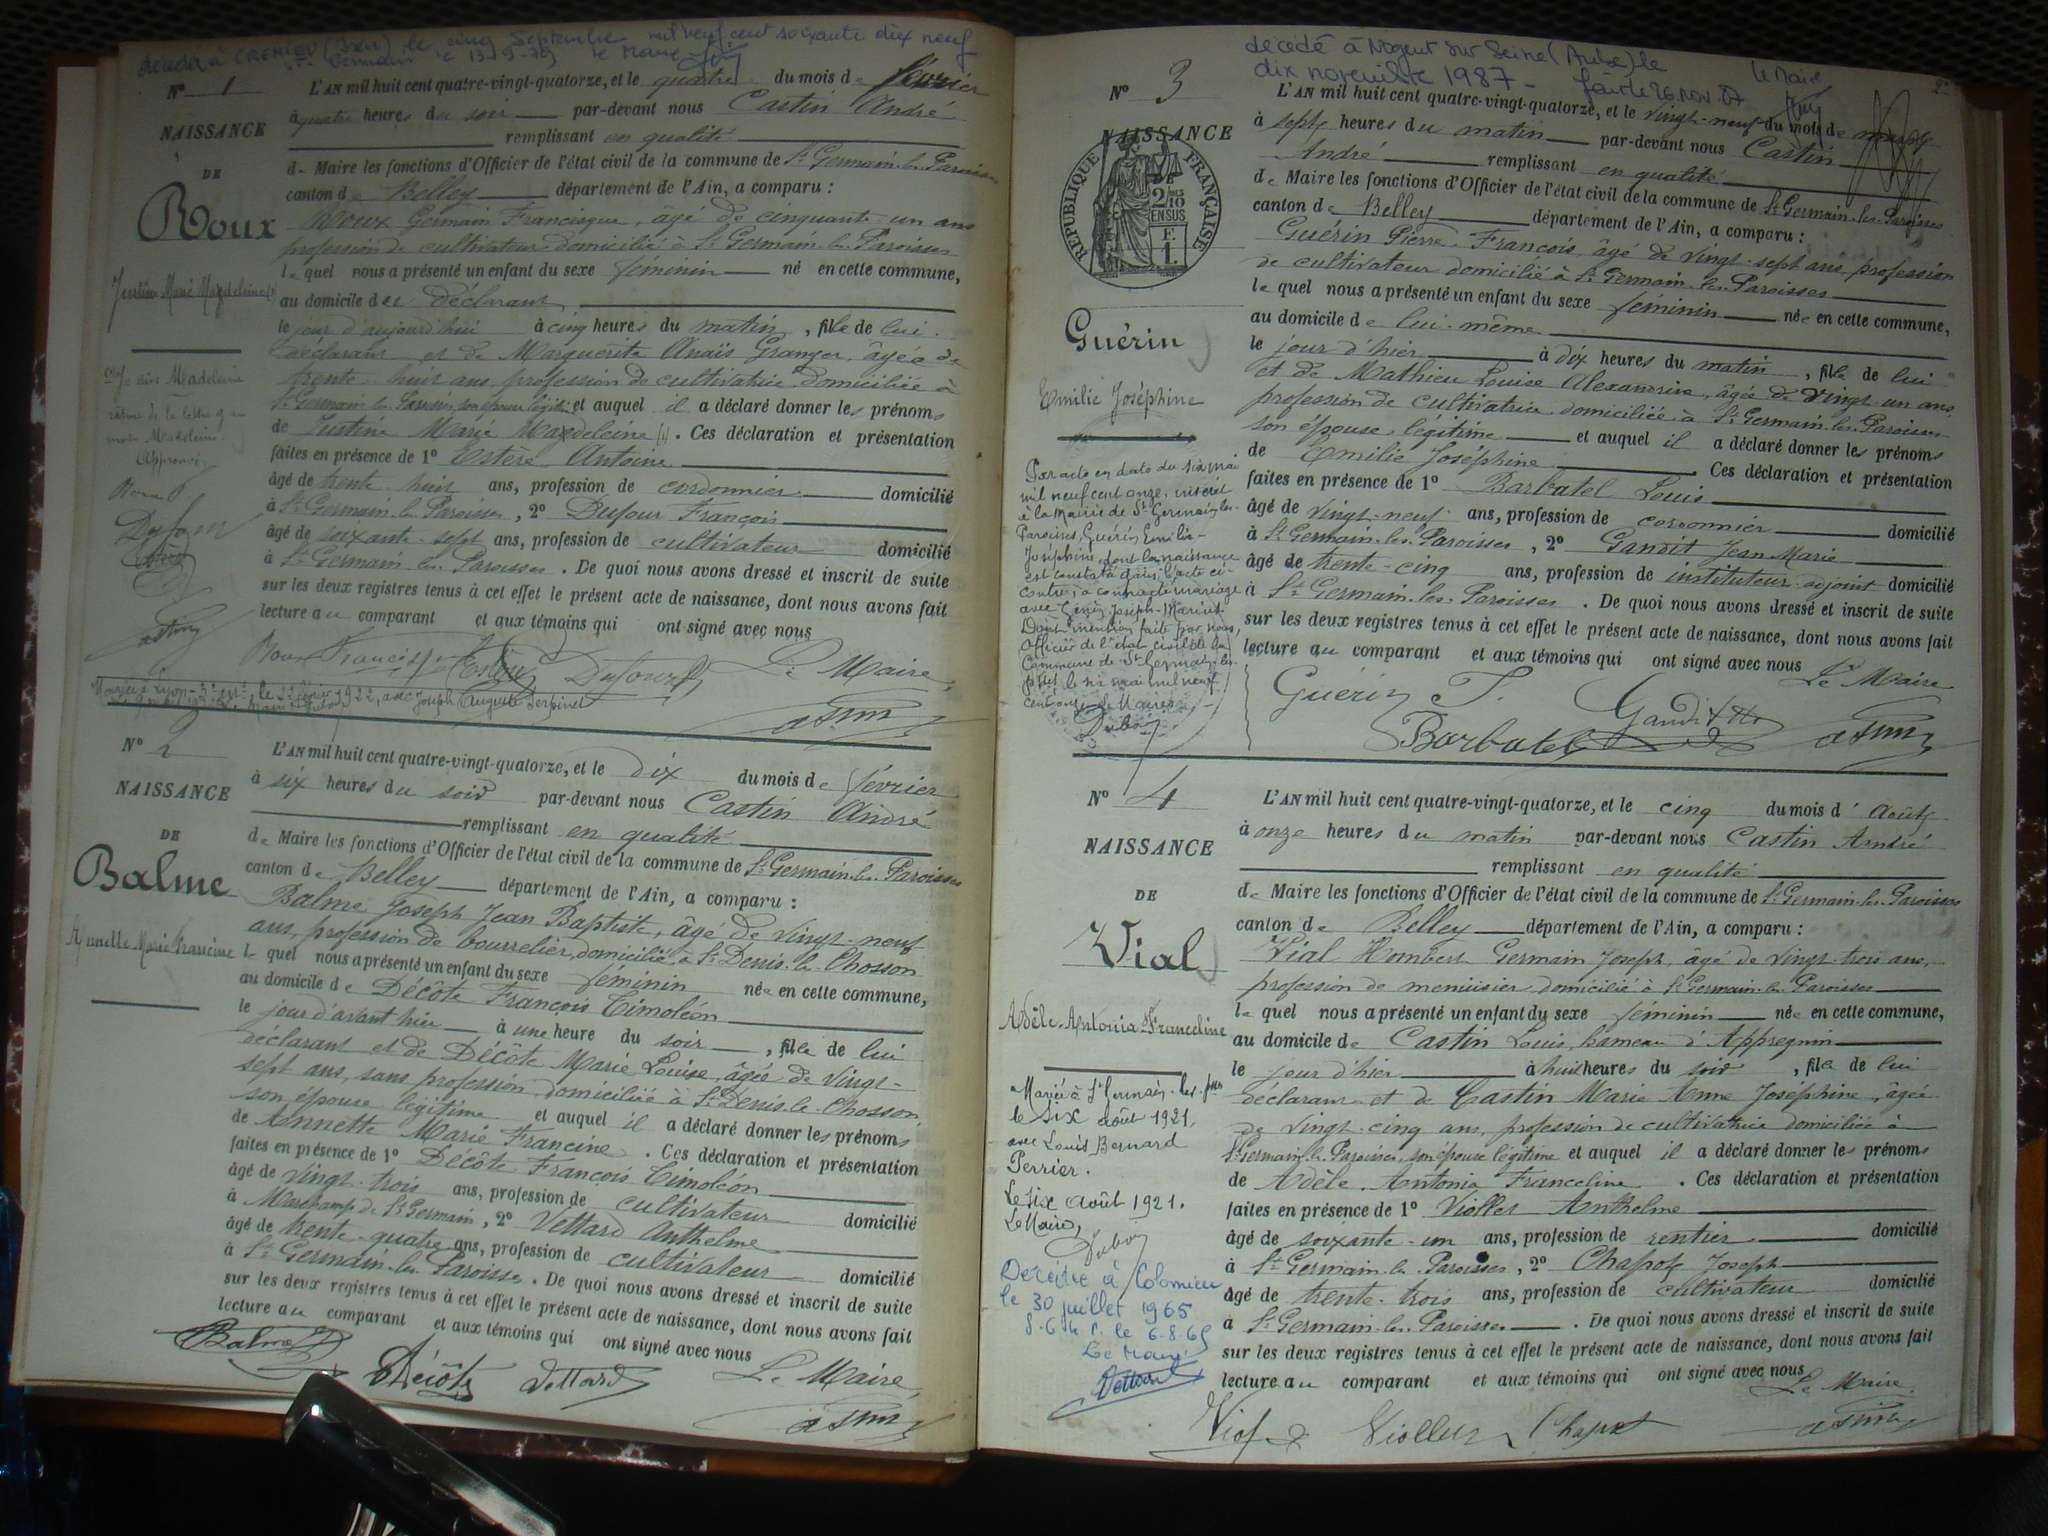 décédée à CREMIEU (Isère) le cinq Septembre mil neuf cent soixante dix neuf
St Germain le 13-9-79 le Maire
N° 1
NAISSANCE
DE
Roux
Justine Marie Magdeleine (1)
(1) Je dis Madeleine
rature de la lettre g au
mot Madeleine.
Approuvé
Roux
Dufour
L'AN mil huit cent quatre-vingt-quatorze, et le quatre du mois de février
à quatre heures du soir par-devant nous Castin André
remplissant en qualité
de Maire les fonctions d'Officier de l'état civil de la commune de St Germain-les-Paroisses
canton de Belley département de l'Ain, a comparu :
Roux Germain Francisque, âgé de cinquante-un ans
profession de cultivateur domicilié à St Germain-les-Paroisses
lequel nous a présenté un enfant du sexe féminin né en cette commune,
au domicile du déclarant
le jour d'aujourd'hui à cinq heures du matin, fille de lui
déclarant et de Marguerite Anaïs Granger, âgée de
trente-huit ans, profession de cultivatrice domiciliée à
St Germain-les-Paroisses, son épouse légitime et auquel il a déclaré donner les prénoms
de Justine Marie Magdeleine (1). Ces déclaration et présentation
faites en présence de 1° Estère Antoine
âgé de trente-huit ans, profession de cordonnier domicilié
à St Germain-les-Paroisses, 2° Dufour François
âgé de soixante-sept ans, profession de cultivateur domicilié
à St Germain-les-Paroisses. De quoi nous avons dressé et inscrit de suite
sur les deux registres tenus à cet effet le présent acte de naissance, dont nous avons fait
lecture au comparant et aux témoins qui ont signé avec nous
Roux Francisque Dufour Le Maire,
Mariée à Lyon-3e arrt, le 1922, avec Joseph Auguste
N° 2
NAISSANCE
DE
Balme
Annette Marie Francine
L'AN mil huit cent quatre-vingt-quatorze, et le dix du mois de février
à six heures du soir par-devant nous Castin André
remplissant en qualité
de Maire les fonctions d'Officier de l'état civil de la commune de St Germain-les-Paroisses
canton de Belley département de l'Ain, a comparu :
Balme Joseph Jean Baptiste, âgé de vingt-neuf
ans, profession de bourrelier, domicilié à St Denis-le-Chosson
lequel nous a présenté un enfant du sexe féminin née en cette commune,
au domicile de Décôte François Timoléon
le jour d'avant hier à une heure du soir, fille de lui
déclarant et de Décôte Marie Louise, âgée de vingt-
sept ans, sans profession, domiciliée à St Denis-le-Chosson,
son épouse légitime et auquel il a déclaré donner les prénoms
de Annette Marie Francine. Ces déclaration et présentation
faites en présence de 1° Décôte François Timoléon
âgé de vingt-trois ans, profession de cultivateur domicilié
à Marchamp de St Germain, 2° Vettard Anthelme
âgé de trente-quatre ans, profession de cultivateur domicilié
à St Germain-les-Paroisses. De quoi nous avons dressé et inscrit de suite
sur les deux registres tenus à cet effet le présent acte de naissance, dont nous avons fait
lecture au comparant et aux témoins qui ont signé avec nous
Balme Décôte Vettard Le Maire,
décédé à Nogent sur Seine (Aube) le
dix novembre 1987 - fait le 26 nov. 87 Le Maire
2
N° 3
NAISSANCE
RÉPUBLIQUE FRANÇAISE
2/10 EN SUS
F. 1.
Guérin
Emilie Joséphine
Par acte en date du six mai
mil neuf cent onze, inscrit
à la Mairie de St Germain-les-
Paroisses, Guérin Emilie-
Joséphine, dont la naissance
est constatée dans l'acte ci-
contre, a contracté mariage
avec Joseph-Marius
Dont mention faite par nous,
Officier de l'état civil de la
Commune de St Germain-les-
le six mai mil neuf
cent onze. Le Maire,
Dubois
L'AN mil huit cent quatre-vingt-quatorze, et le vingt-neuf du mois de mars
à sept heures du matin par-devant nous Castin
André remplissant en qualité
de Maire les fonctions d'Officier de l'état civil de la commune de St Germain-les-Paroisses
canton de Belley département de l'Ain, a comparu :
Guérin Pierre François, âgé de vingt-sept ans, profession
de cultivateur domicilié à St Germain-les-Paroisses
lequel nous a présenté un enfant du sexe féminin née en cette commune,
au domicile de lui-même
le jour d'hier à dix heures du matin, fille de lui
et de Mathieu Louise Alexandrine, âgée de vingt-un ans,
profession de cultivatrice domiciliée à St Germain-les-Paroisses
son épouse légitime et auquel il a déclaré donner les prénoms
de Emilie Joséphine. Ces déclaration et présentation
faites en présence de 1° Barbatel Louis
âgé de vingt-neuf ans, profession de cordonnier domicilié
à St Germain-les-Paroisses, 2° Gandit Jean Marie
âgé de trente-cinq ans, profession de instituteur adjoint domicilié
à St Germain-les-Paroisses. De quoi nous avons dressé et inscrit de suite
sur les deux registres tenus à cet effet le présent acte de naissance, dont nous avons fait
lecture au comparant et aux témoins qui ont signé avec nous
Le Maire
Guérin Gandit
Barbatel
N° 4
NAISSANCE
DE
Vial
Adèle Antonia Franceline
Mariée à St Germain-les-psses
le six août 1921,
avec Louis Bernard
Perrier.
Le six août 1921.
Le Maire,
Dubois
Décédée à Colomieu
le 30 juillet 1965
le 6.8.65
Le Maire
Vettard
L'AN mil huit cent quatre-vingt-quatorze, et le cinq du mois d'Août
à onze heures du matin par-devant nous Castin André
remplissant en qualité
de Maire les fonctions d'Officier de l'état civil de la commune de St Germain-les-Paroisses
canton de Belley département de l'Ain, a comparu :
Vial Hombert Germain Joseph, âgé de vingt-trois ans,
profession de menuisier domicilié à St Germain-les-Paroisses
lequel nous a présenté un enfant du sexe féminin née en cette commune,
au domicile de Castin Louis, hameau d'Appregnin
le jour d'hier à huit heures du soir, fille de lui
déclarant et de Castin Marie Anne Joséphine, âgée
de vingt-cinq ans, profession de cultivatrice domiciliée à
St Germain-les-Paroisses, son épouse légitime et auquel il a déclaré donner les prénoms
de Adèle Antonia Franceline. Ces déclaration et présentation
faites en présence de 1° Viollet Anthelme
âgé de soixante-un ans, profession de rentier domicilié
à St Germain-les-Paroisses, 2° Chapot Joseph
âgé de trente-trois ans, profession de cultivateur domicilié
à St Germain-les-Paroisses. De quoi nous avons dressé et inscrit de suite
sur les deux registres tenus à cet effet le présent acte de naissance, dont nous avons fait
lecture au comparant et aux témoins qui ont signé avec nous
Le Maire,
Vial Viollet Chapot